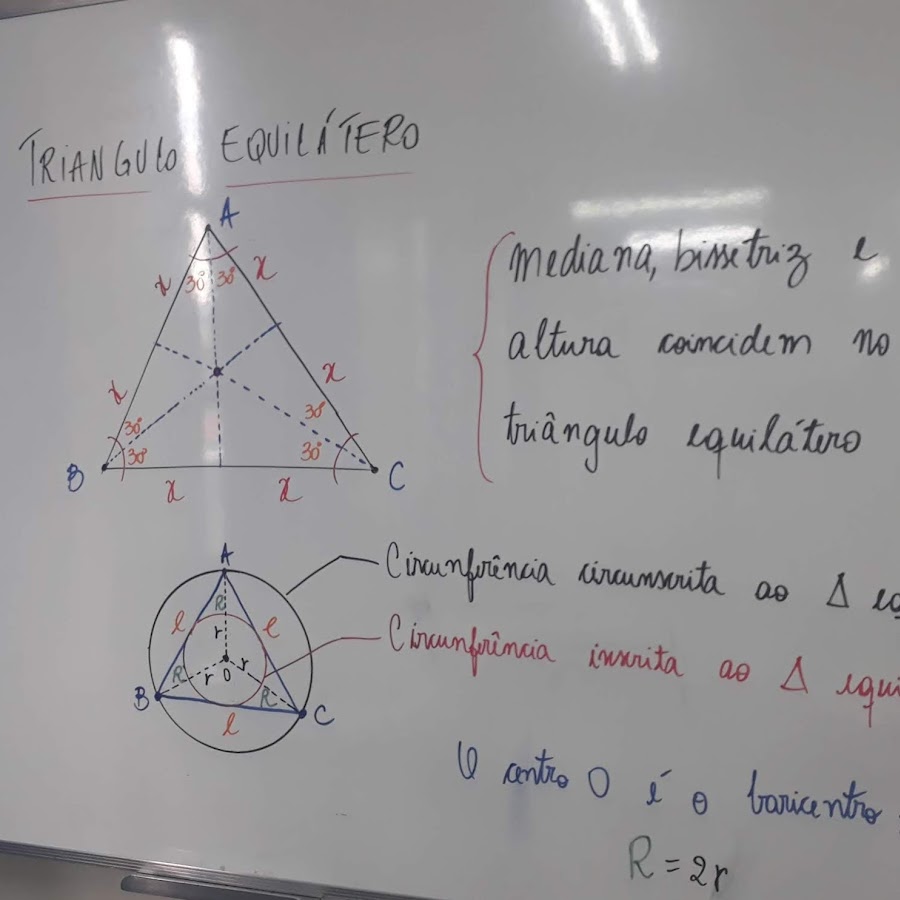 TRIANGULO EQUILÁTERO
A
x 30° 30° x
x x
30° 30°
30° 30°
B C
x x
mediana, bissetriz e
altura coincidem no
triângulo equilátero
A
R
l r l
R r O r R
B C
l
Circunferência circunscrita ao Δ
Circunferência inscrita ao Δ equi
O centro O é o baricentro
R = 2r